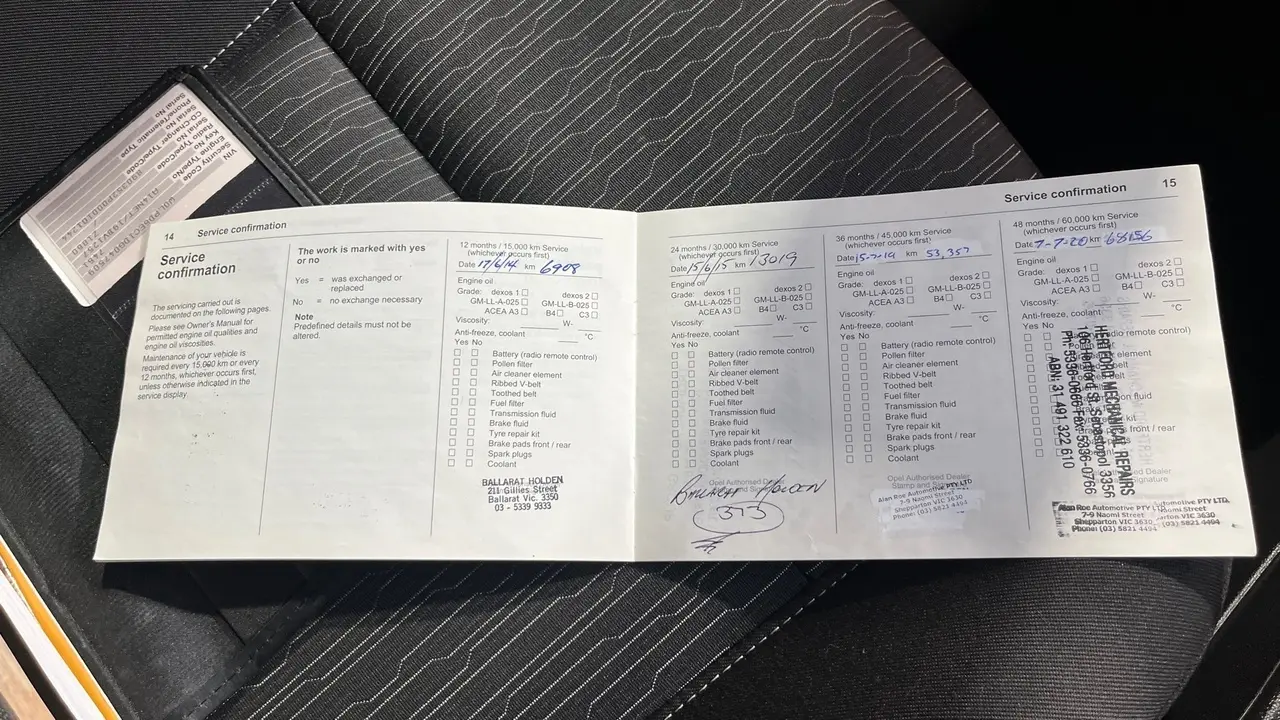 VIN
Security Code
Engine Type/No
Key No
Radio Type/Code
Serial No
CD-Changer Type/Code
Serial No
Phone/Telematic Type
Serial No
14 Service confirmation
Service
confirmation
The servicing carried out is
documented on the following pages.
Please see Owner's Manual for
permitted engine oil qualities and
engine oil viscosities.
Maintenance of your vehicle is
required every 15,000 km or every
12 months, whichever occurs first,
unless otherwise indicated in the
service display
The work is marked with yes
or no
Yes = was exchanged or
replaced
No = no exchange necessary
Note
Predefined details must not be
altered.
12 months / 15,000 km Service
(whichever occurs first)
Date 17/6/14 km 6908
Engine oil
Grade: dexos 1 dexos 2
GM-LL-A-025 GM-LL-B-025
ACEA A3 B4 C3
Viscosity: W-
Anti-freeze, coolant °C
Yes No
Battery (radio remote control)
Pollen filter
Air cleaner element
Ribbed V-belt
Toothed belt
Fuel filter
Transmission fluid
Brake fluid
Tyre repair kit
Brake pads front / rear
Spark plugs
Coolant
BALLARAT HOLDEN
211 Gillies Street
Ballarat Vic. 3350
03 - 5339 9333
Service confirmation 15
24 months / 30,000 km Service
(whichever occurs first)
Date 15/6/15 km 13019
Engine oil
Grade: dexos 1 dexos 2
GM-LL-A-025 GM-LL-B-025
ACEA A3 B4 C3
Viscosity: W-
Anti-freeze, coolant °C
Yes No
Battery (radio remote control)
Pollen filter
Air cleaner element
Ribbed V-belt
Toothed belt
Fuel filter
Transmission fluid
Brake fluid
Tyre repair kit
Brake pads front / rear
Spark plugs
Coolant
Opel Authorised
BALLARAT HOLDEN
373
36 months / 45,000 km Service
(whichever occurs first)
Date 15-7-19 km 53,357
Engine oil
Grade: dexos 1 dexos 2
GM-LL-A-025 GM-LL-B-025
ACEA A3 B4 C3
Viscosity: W-
Anti-freeze, coolant °C
Yes No
Battery (radio remote control)
Pollen filter
Air cleaner element
Ribbed V-belt
Toothed belt
Fuel filter
Transmission fluid
Brake fluid
Tyre repair kit
Brake pads front / rear
Spark plugs
Coolant
Opel Authorised Dealer
Stamp and
Alan Roe Automotive PTY LTD
7-9 Naomi Street
Shepparton VIC 3630
Phone: (03) 5821 4494
48 months / 60,000 km Service
(whichever occurs first)
Date 7-7-20 km 68156
Engine oil
Grade: dexos 1 dexos 2
GM-LL-A-025 GM-LL-B-025
ACEA A3 B4 C3
Viscosity: W-
Anti-freeze, coolant °C
Yes No
radio remote control)
element
belt
fluid
kit
front / rear
Dealer
Signature
HERTFORD MECHANICAL REPAIRS
106 Hertford St, Sebastopol 3356
Ph: 5336-0666 Fax: 5336-0766
ABN: 31 491 322 610
Alan Roe Automotive PTY LTD
7-9 Naomi Street
Shepparton VIC 3630
Phone: (03) 5821 4494
utomotive PTY LTD
aomi Street
arton VIC 3630
(03) 5821 4494